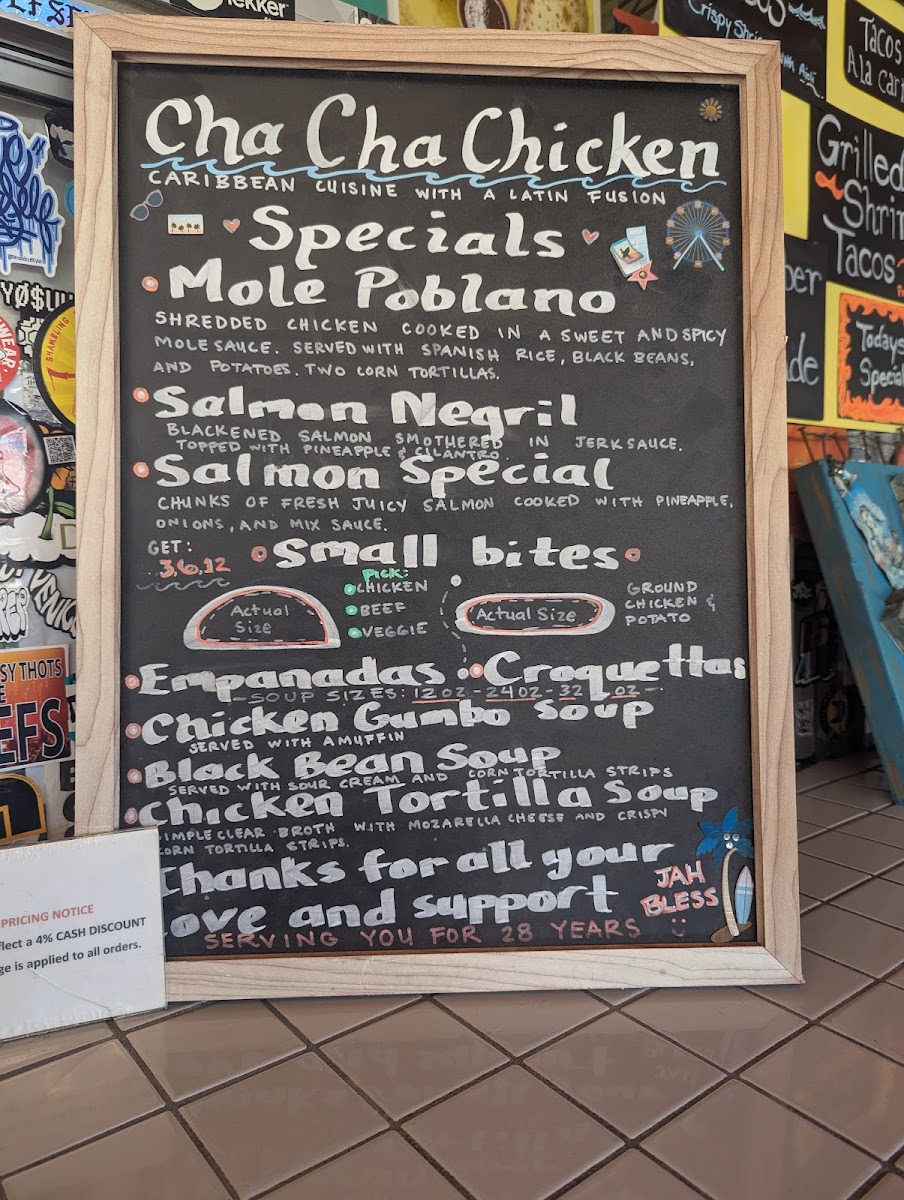 Cha Cha Chicken
CARIBBEAN CUISINE WITH A LATIN FUSION
Specials
Mole Poblano
SHREDDED CHICKEN COOKED IN A SWEET AND SPICY
MOLE SAUCE. SERVED WITH SPANISH RICE, BLACK BEANS,
AND POTATOES. TWO CORN TORTILLAS.
Salmon Negril
BLACKENED SALMON SMOTHERED IN JERK SAUCE.
TOPPED WITH PINEAPPLE & CILANTRO.
Salmon Special
CHUNKS OF FRESH JUICY SALMON COOKED WITH PINEAPPLE,
ONIONS, AND MIX SAUCE.
GET:
3,6,12
small bites
PICK:
CHICKEN
BEEF
VEGGIE
Actual
Size
Actual Size
GROUND
CHICKEN &
POTATO
Empanadas
Croquettas
SOUP SIZES: 12 OZ - 24 OZ - 32 OZ -
Chicken Gumbo Soup
SERVED WITH A MUFFIN
Black Bean Soup
SERVED WITH SOUR CREAM AND CORN TORTILLA STRIPS
Chicken Tortilla Soup
SIMPLE CLEAR BROTH WITH MOZARELLA CHEESE AND CRISPY
CORN TORTILLA STRIPS.
Thanks for all your
love and support
JAH
BLESS
SERVING YOU FOR 28 YEARS
PRICING NOTICE
flect a 4% CASH DISCOUNT
ge is applied to all orders.
Tacos
A la Car
Grilled
Shri
Tacos
Todays
Special
SY THOTS
EFS